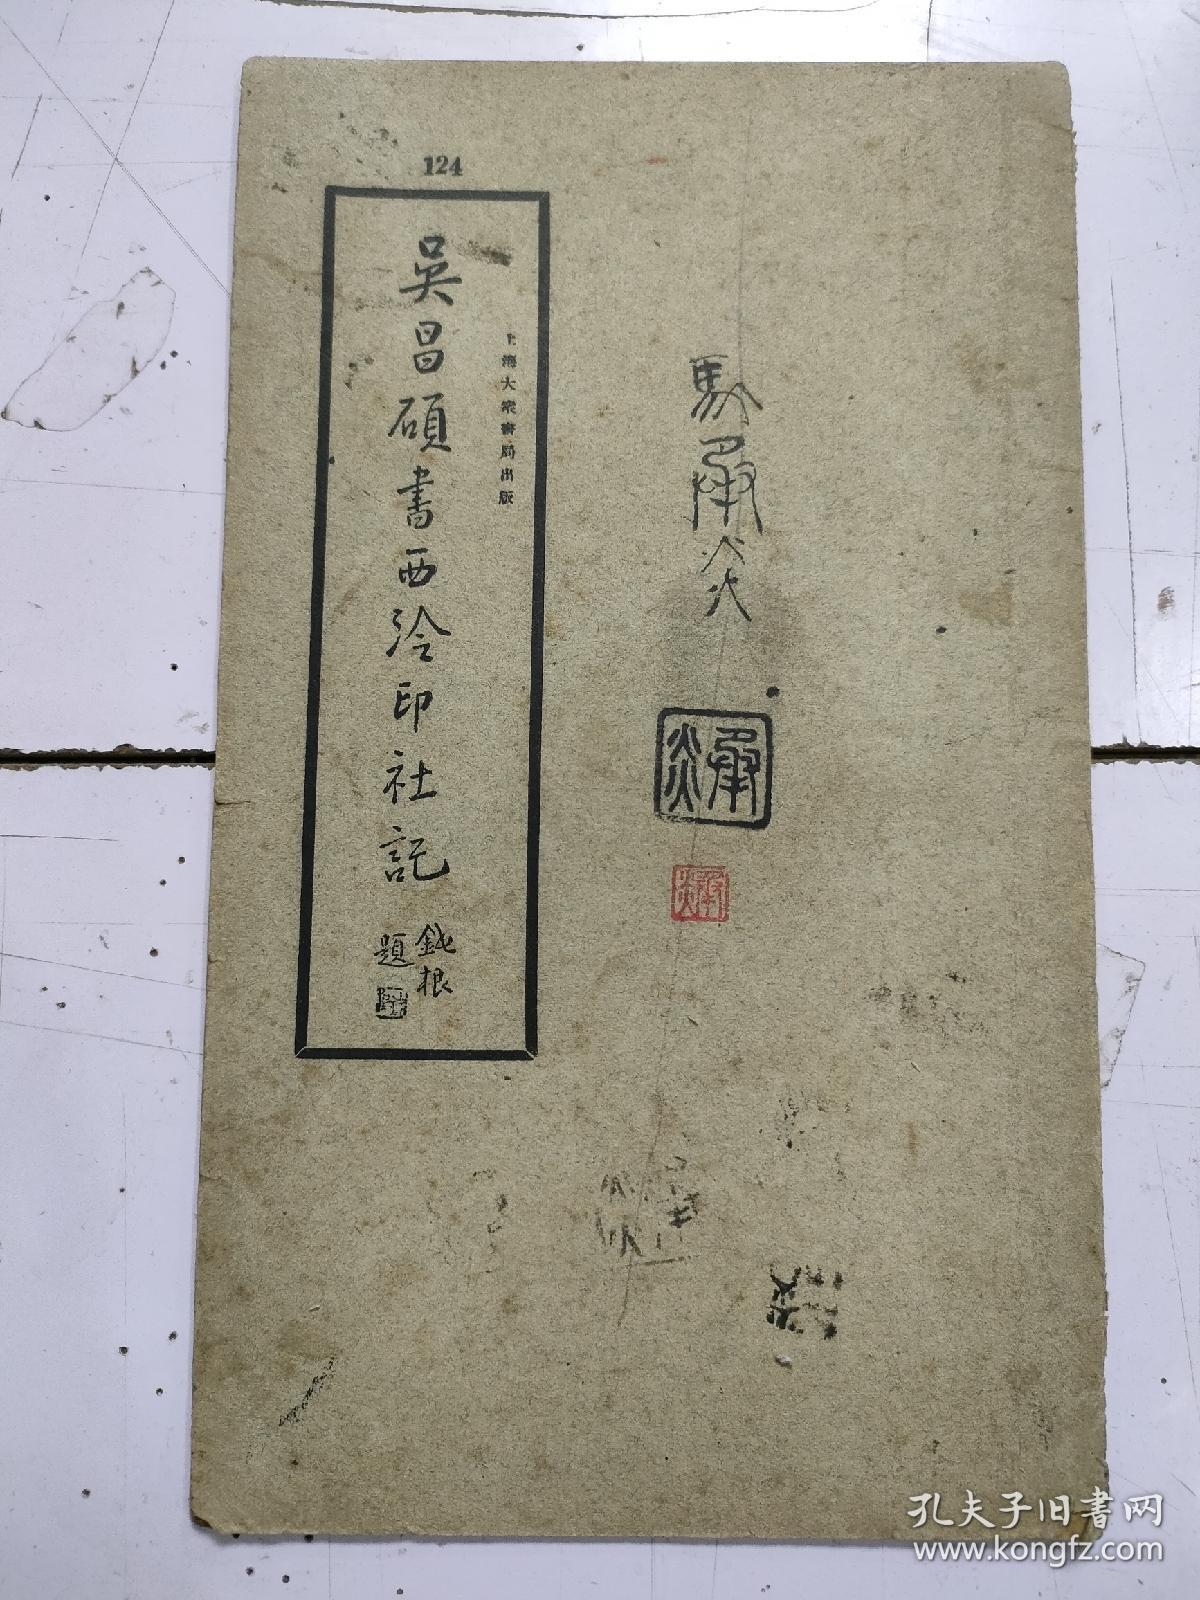 124
上海大衆書局出版
吳昌碩書西泠印社記
鈍根
題
馬承炎
承炎
承炎
孔夫子旧書网
www.kongfz.com